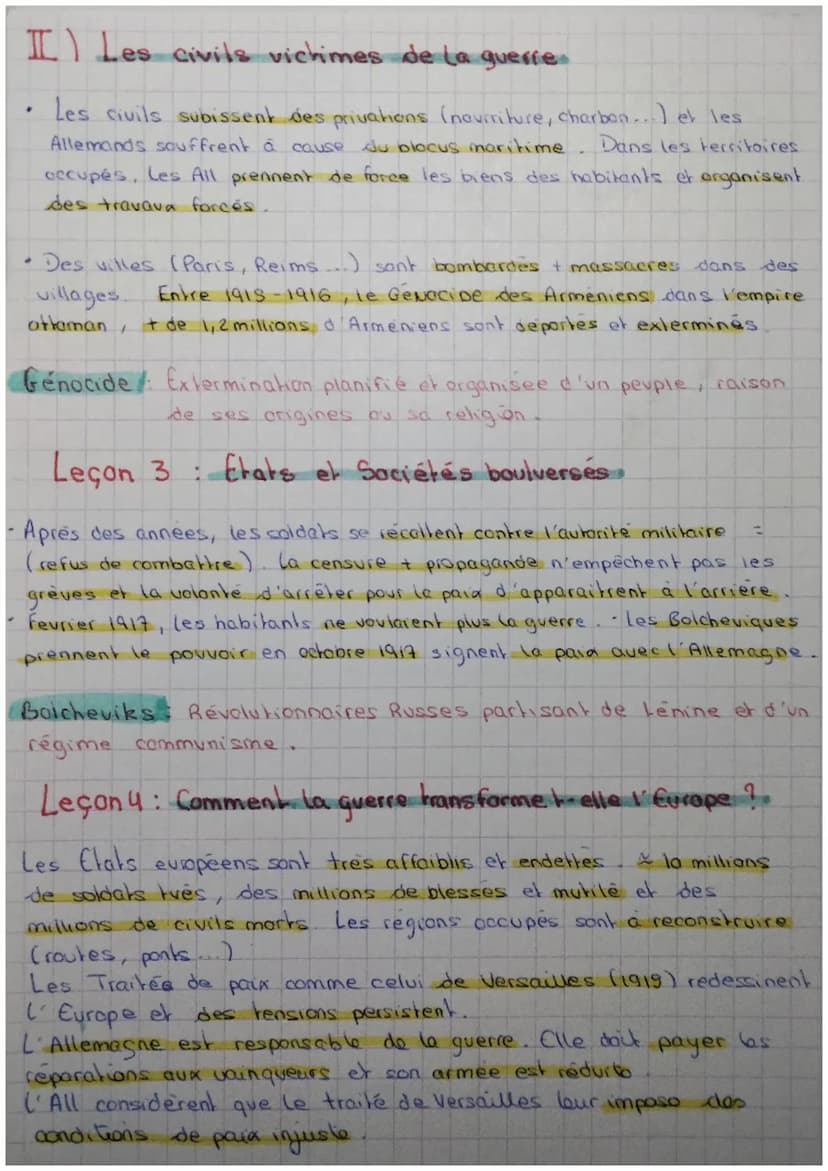 II) Les civils victimes de la guerre
• Les civils subissent des privations (nourriture, charbon...) et les
Allemands souffrent à cause du blocus maritime. Dans les territoires
occupés, Les All prennent de force les biens des habitants et organisent
des travaux forcés.
• Des villes (Paris, Reims...) sont bombardés + massacres dans des
villages. Entre 1915-1916, le Génocide des Arméniens dans l'empire
ottoman, + de 1,2 millions d'Arméniens sont déportés et exterminés
Génocide : Extermination planifié et organisée d'un peuple, raison
de ses origines ou sa religion.
Leçon 3 : Etats et Sociétés boulversés
- Après des années, les soldats se récoltent contre l'autorité militaire =
(refus de combattre). La censure + propagande n'empêchent pas les
grèves et la volonté d'arrêter pour la paix d'apparaitrent à l'arrière.
- Fevrier 1917, les habitants ne voulaient plus la guerre. · Les Bolcheviques
prennent le pouvoir en octobre 1917 signent la paix avec l'Allemagne.
Bolcheviks : Révolutionnaires Russes partisant de Lénine et d'un
régime communisme.
Leçon 4 : Comment la guerre transforme t-elle l'Europe ?
Les Etats européens sont très affaiblis et endettés. ≈ 10 millions
de soldats tués, des millions de blessés et mutilé et des
millions de civils morts. Les régions occupés sont à reconstruire
(routes, ponts...)
Les Traités de paix comme celui de Versailles (1919) redessinent
l'Europe et des tensions persistent.
L'Allemagne est responsable de la guerre. Elle doit payer les
réparations aux vainqueurs et son armée est réduite
L'All considèrent que le traité de Versailles leur impose des
conditions de paix injuste.